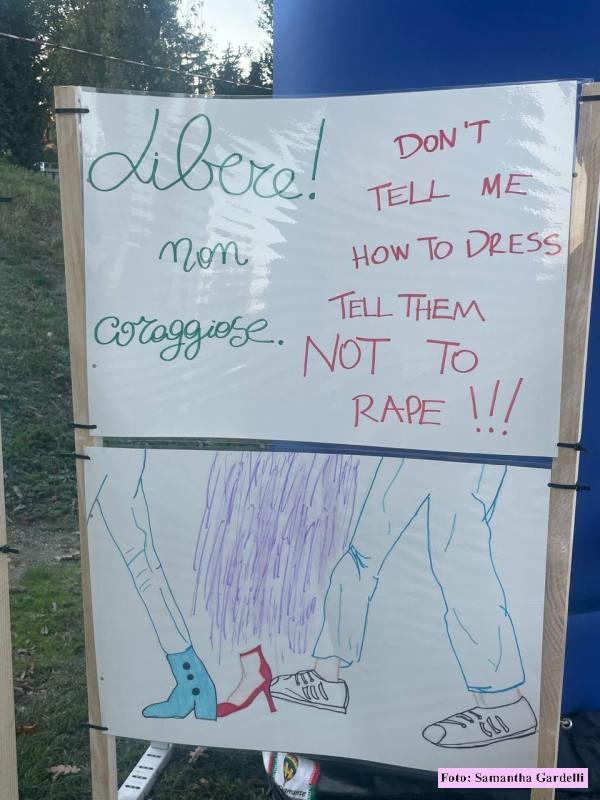 Libere!
non
coraggiose.
DON'T
TELL ME
HOW TO DRESS
TELL THEM
NOT TO
RAPE !!!
Foto: Samantha Gardelli